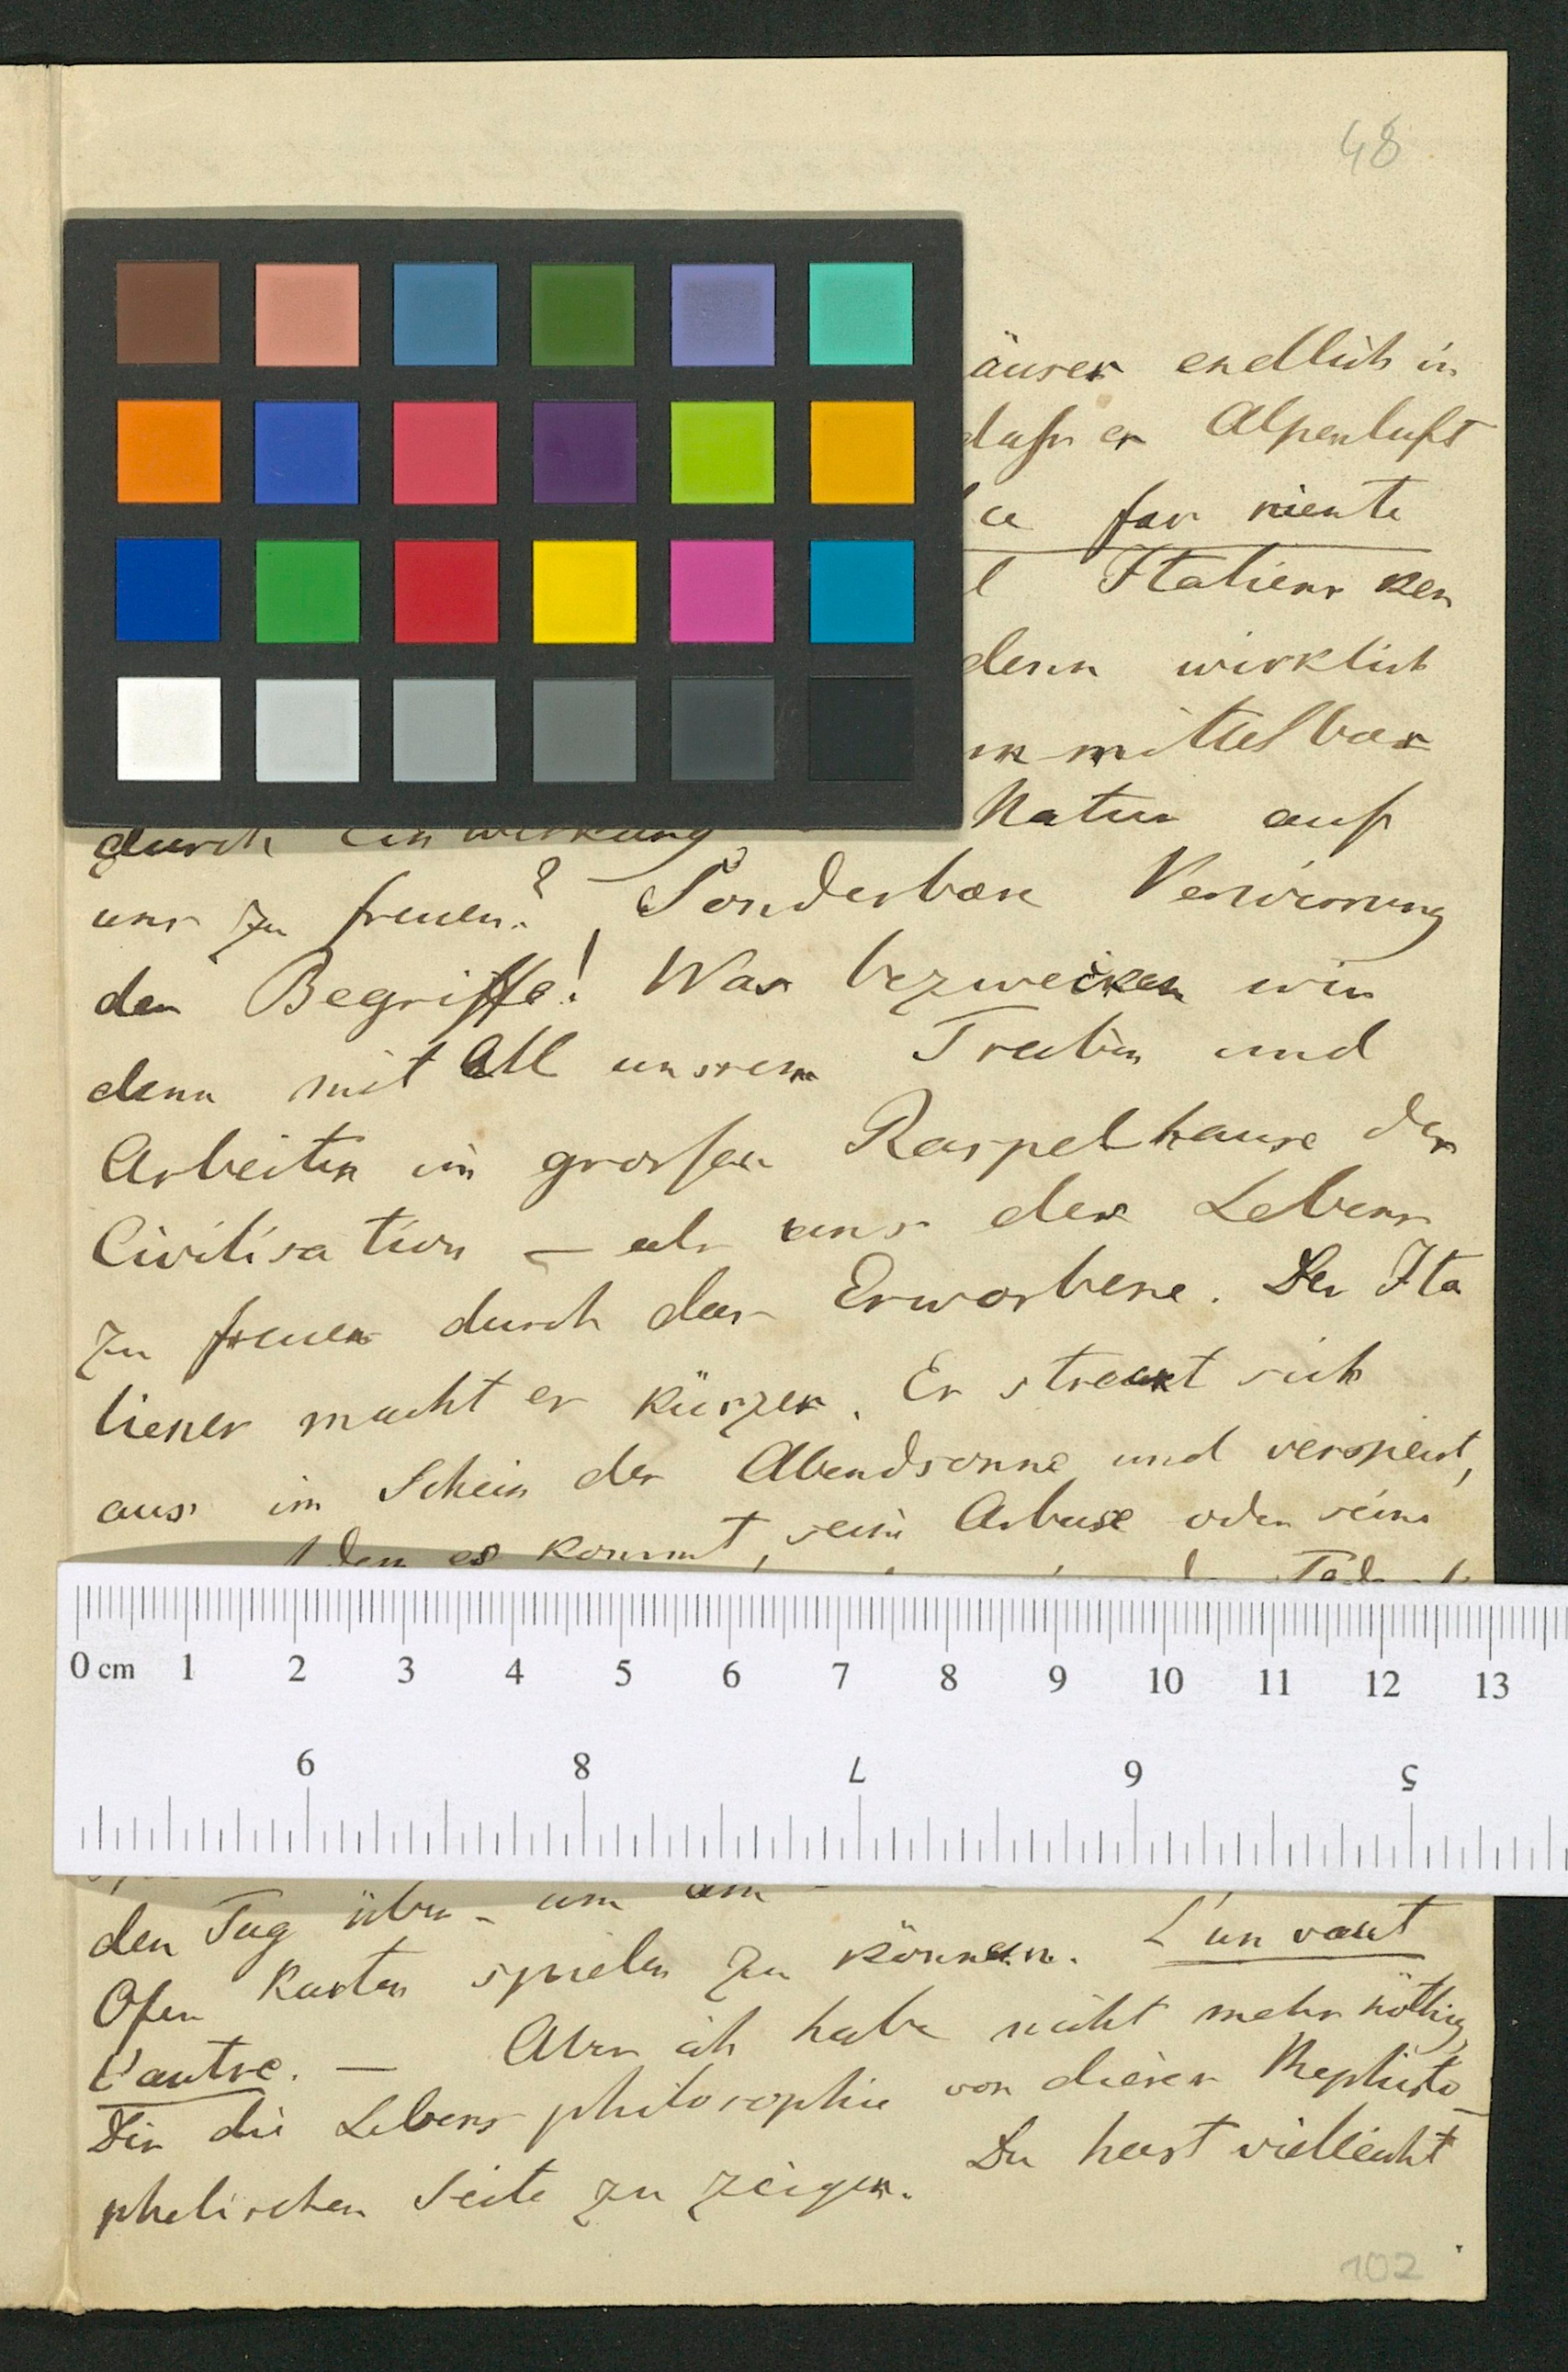 48
äuser endlich in
dass er Alpenluft
ce far niente
l Italiens ken
denn wirklich
un mittelbar
durch Einwirkung Natur auf
uns zu freuen? – Sonderbare Verwirrung
der Begriffe! Was bezwecken wir
denn mit All unsrem Treiben und
Arbeiten im grossen Raspelhause der
Civilisation — als uns des Lebens
zu freuen durch das Erworbene. Der Ita
liener macht es kürzer. Er streckt sich
aus im Schein der Abendsonne und verspeist,
es kommt, seine Arbuse oder seine
0 cm 1 2 3 4 5 6 7 8 9 10 11 12 13
9 8 7 6 5
den Tag über – um am
Ofen Karten spielen zu können. L'un vaut
l'autre. — Aber ich habe nicht mehr nöthig,
Dir die Lebensphilosophie von dieser Mephisto-
phelischen Seite zu zeigen. Du hast vielleicht
102